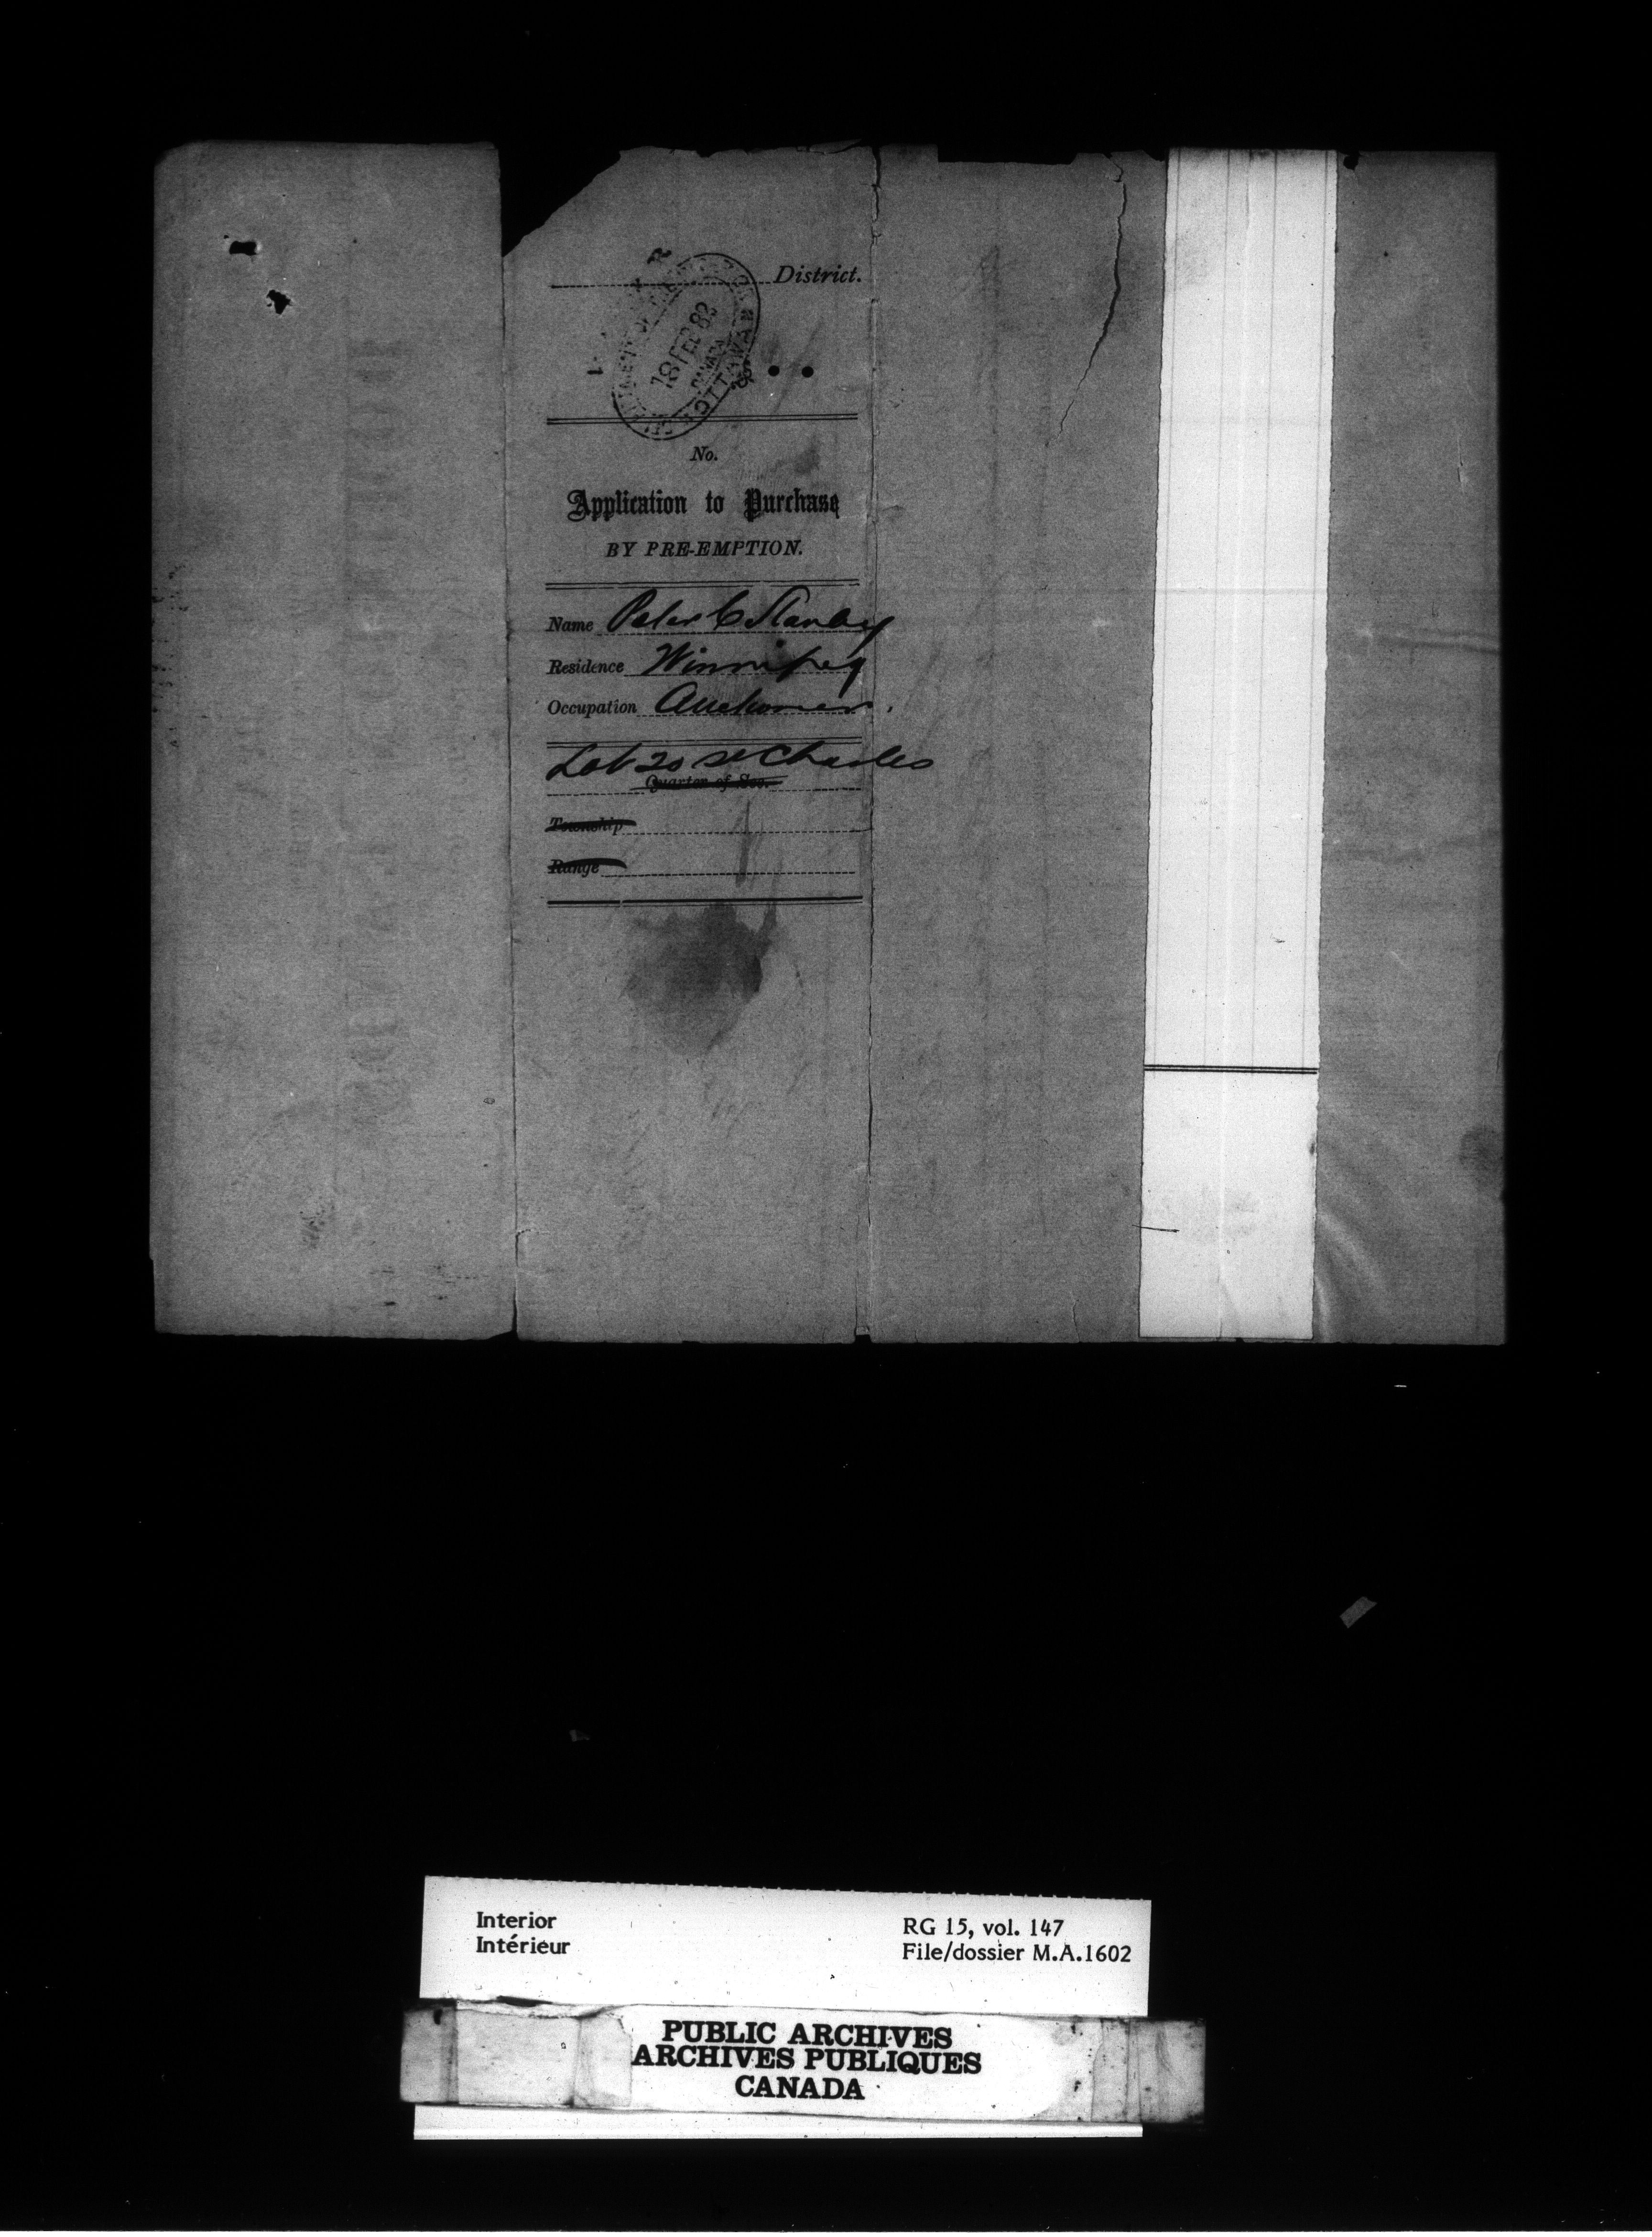 District.
18 FEB 82
CANADA
OTTAWA
No.
Application to Purchase
BY PRE-EMPTION.
Name Peter C
Residence Winnipeg
Occupation Auctioneer.
Lot 20 St Charles
Quarter of Sec.
Township
Range
Interior
Intérieur
RG 15, vol. 147
File/dossier M.A.1602
PUBLIC ARCHIVES
ARCHIVES PUBLIQUES
CANADA